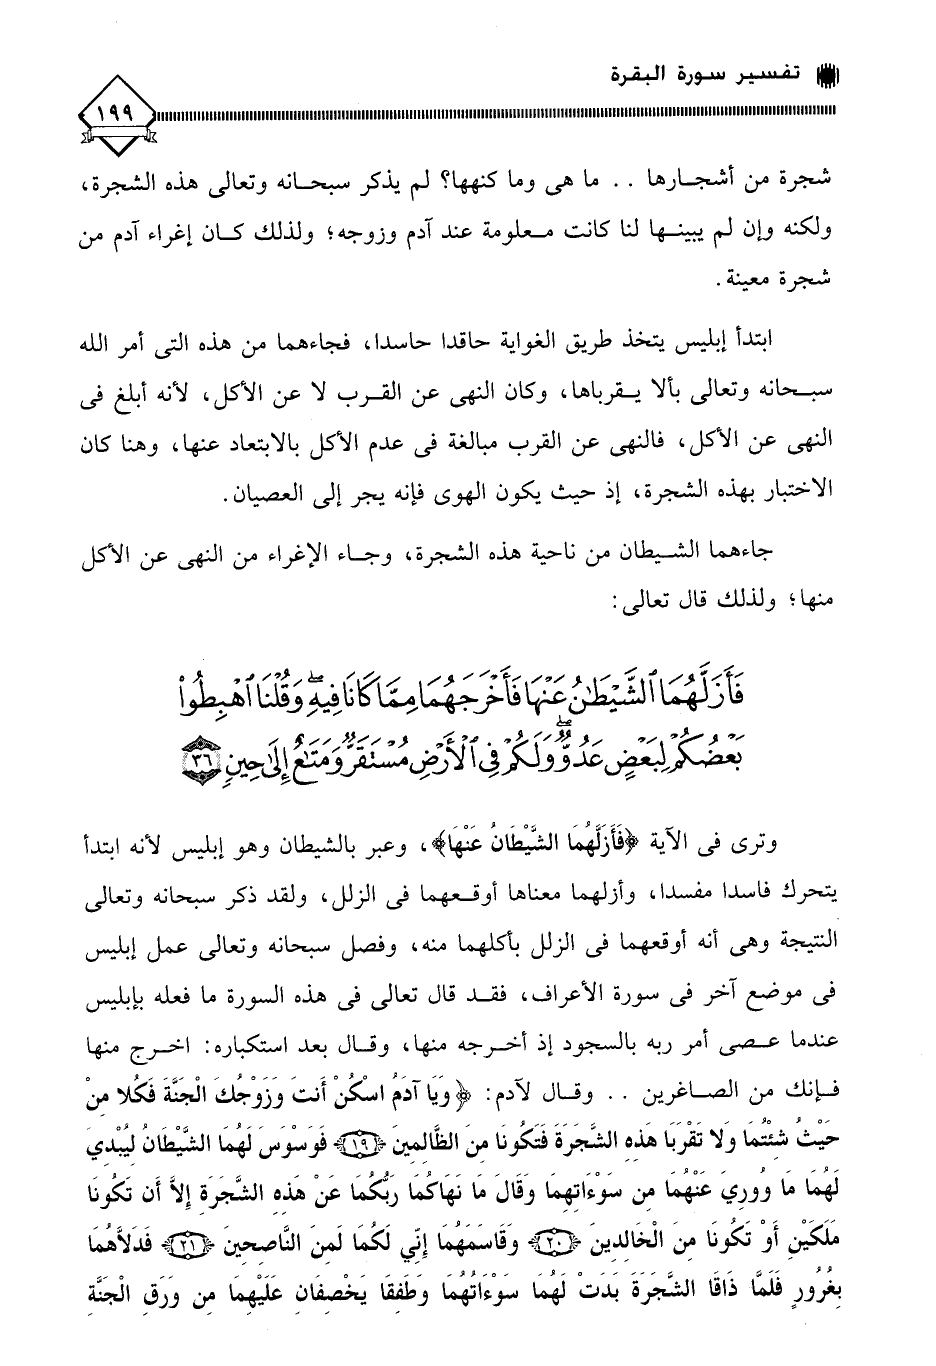 تفسير سورة البقرة
١٩٩
شجرة من أشجارها . . ما هى وما كنهها؟ لم يذكر سبحانه وتعالى هذه الشجرة،
ولكنه وإن لم يبينها لنا كانت معلومة عند آدم وزوجه؛ ولذلك كان إغراء آدم من
شجرة معينة.
ابتدأ إبليس يتخذ طريق الغواية حاقدا حاسدا، فجاءهما من هذه التى أمر الله
سبحانه وتعالى بألا يقرباها، وكان النهى عن القرب لا عن الأكل، لأنه أبلغ فى
النهى عن الأكل، فالنهى عن القرب مبالغة فى عدم الأكل بالابتعاد عنها، وهنا كان
الاختبار بهذه الشجرة، إذ حيث يكون الهوى فإنه يجر إلى العصيان.
جاءهما الشيطان من ناحية هذه الشجرة، وجاء الإغراء من النهى عن الأكل
منها؛ ولذلك قال تعالى:
فَأَزَلَّهُمَا ٱلشَّيْطَٰنُ عَنْهَا فَأَخْرَجَهُمَا مِمَّا كَانَا فِيهِ ۖ وَقُلْنَا ٱهْبِطُوا۟
بَعْضُكُمْ لِبَعْضٍ عَدُوٌّ ۖ وَلَكُمْ فِى ٱلْأَرْضِ مُسْتَقَرٌّ وَمَتَٰعٌ إِلَىٰ حِينٍ ٣٦
وترى فى الآية ﴿فَأَزَلَّهُمَا الشَّيْطَانُ عَنْهَا﴾، وعبر بالشيطان وهو إبليس لأنه ابتدأ
يتحرك فاسدا مفسدا، وأزلهما معناها أوقعهما فى الزلل، ولقد ذكر سبحانه وتعالى
النتيجة وهى أنه أوقعهما فى الزلل بأكلهما منه، وفصل سبحانه وتعالى عمل إبليس
فى موضع آخر فى سورة الأعراف، فقد قال تعالى فى هذه السورة ما فعله بإبليس
عندما عصى أمر ربه بالسجود إذ أخرجه منها، وقال بعد استكباره: اخرج منها
فإنك من الصاغرين . . وقال لآدم: ﴿وَيَا آدَمُ اسْكُنْ أَنتَ وَزَوْجُكَ الْجَنَّةَ فَكُلا مِنْ
حَيْثُ شِئْتُمَا وَلا تَقْرَبَا هَذِهِ الشَّجَرَةَ فَتَكُونَا مِنَ الظَّالِمِينَ ﴿١٩﴾ فَوَسْوَسَ لَهُمَا الشَّيْطَانُ لِيُبْدِيَ
لَهُمَا مَا وُورِيَ عَنْهُمَا مِن سَوْءَاتِهِمَا وَقَالَ مَا نَهَاكُمَا رَبُّكُمَا عَنْ هَذِهِ الشَّجَرَةِ إِلاَّ أَن تَكُونَا
مَلَكَيْنِ أَوْ تَكُونَا مِنَ الْخَالِدِينَ ﴿٢٠﴾ وَقَاسَمَهُمَا إِنِّي لَكُمَا لَمِنَ النَّاصِحِينَ ﴿٢١﴾ فَدَلاَّهُمَا
بِغُرُورٍ فَلَمَّا ذَاقَا الشَّجَرَةَ بَدَتْ لَهُمَا سَوْءَاتُهُمَا وَطَفِقَا يَخْصِفَانِ عَلَيْهِمَا مِن وَرَقِ الْجَنَّةِ